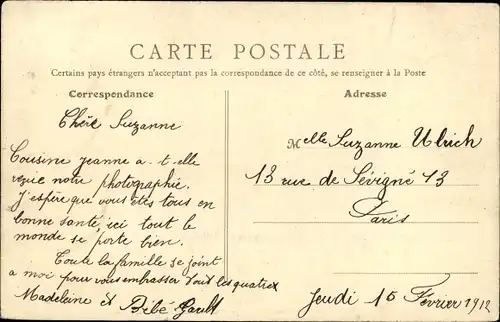 CARTE POSTALE
Certains pays étrangers n'acceptant pas la correspondance de ce côté, se renseigner à la Poste
Correspondance
Chère Suzanne
Cousine Jeanne a-t-elle
reçue notre photographie.
J'espère que vous êtes tous en
bonne santé, ici tout le
monde se porte bien.
Toute la famille se joint
a moi pour vous embrasser tous les quatre
Madeleine et Bébé Gault
Adresse
Melle Suzanne Ulrich
13 rue de Sévigné 13
Paris
Jeudi 15 Février 1912